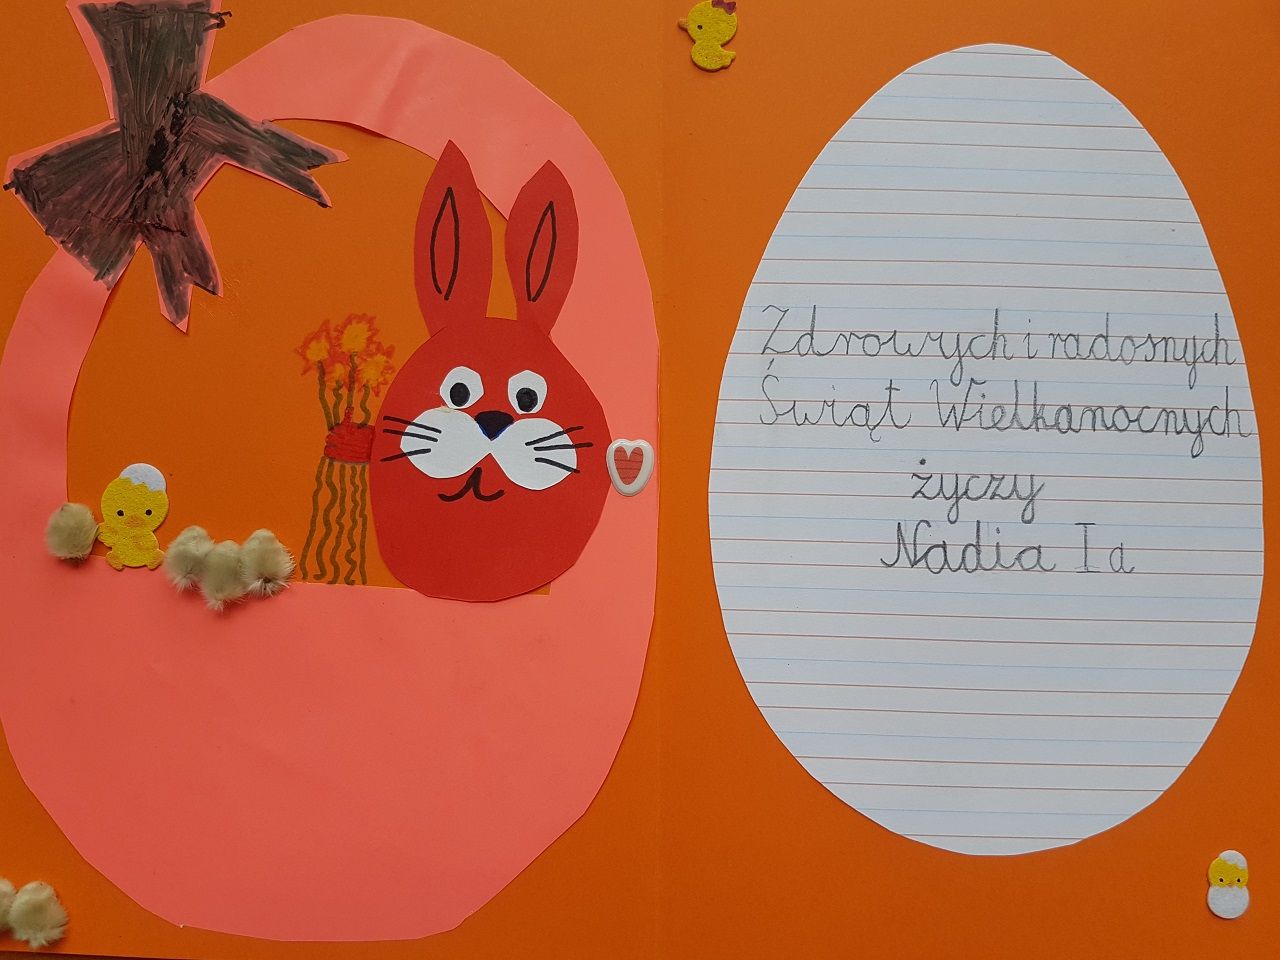 Zdrowych i radosnych
Świąt Wielkanocnych
życzy
Nadia Ia